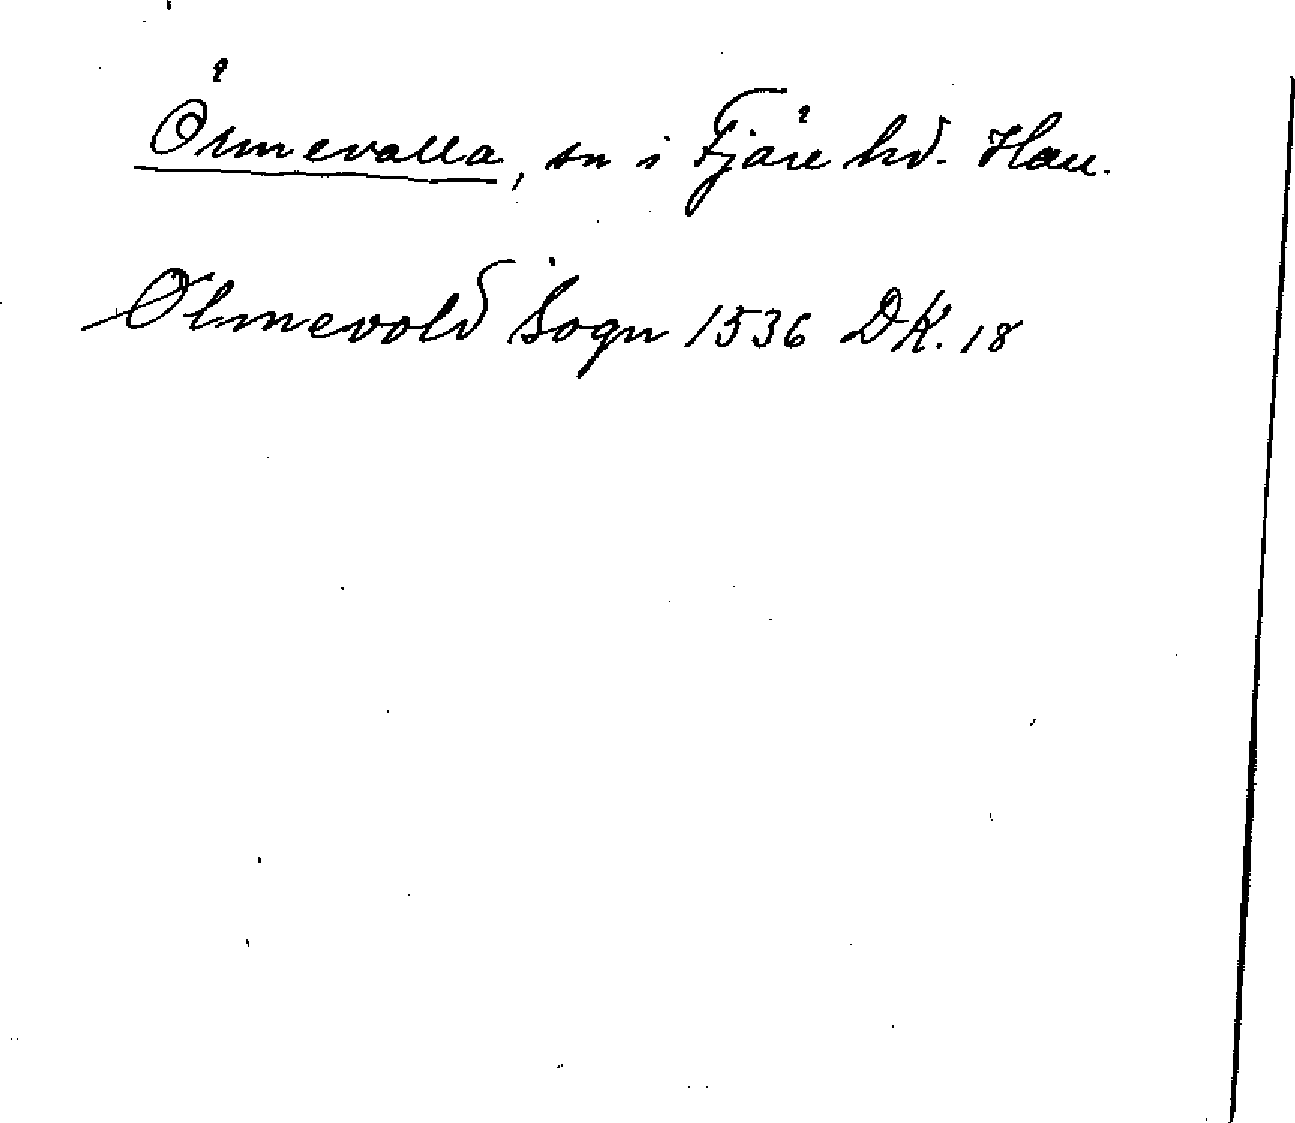 Ölmevalla, sn i Fjäre hd. Hall.
Ølmevold Sogn 1536 DK. 18